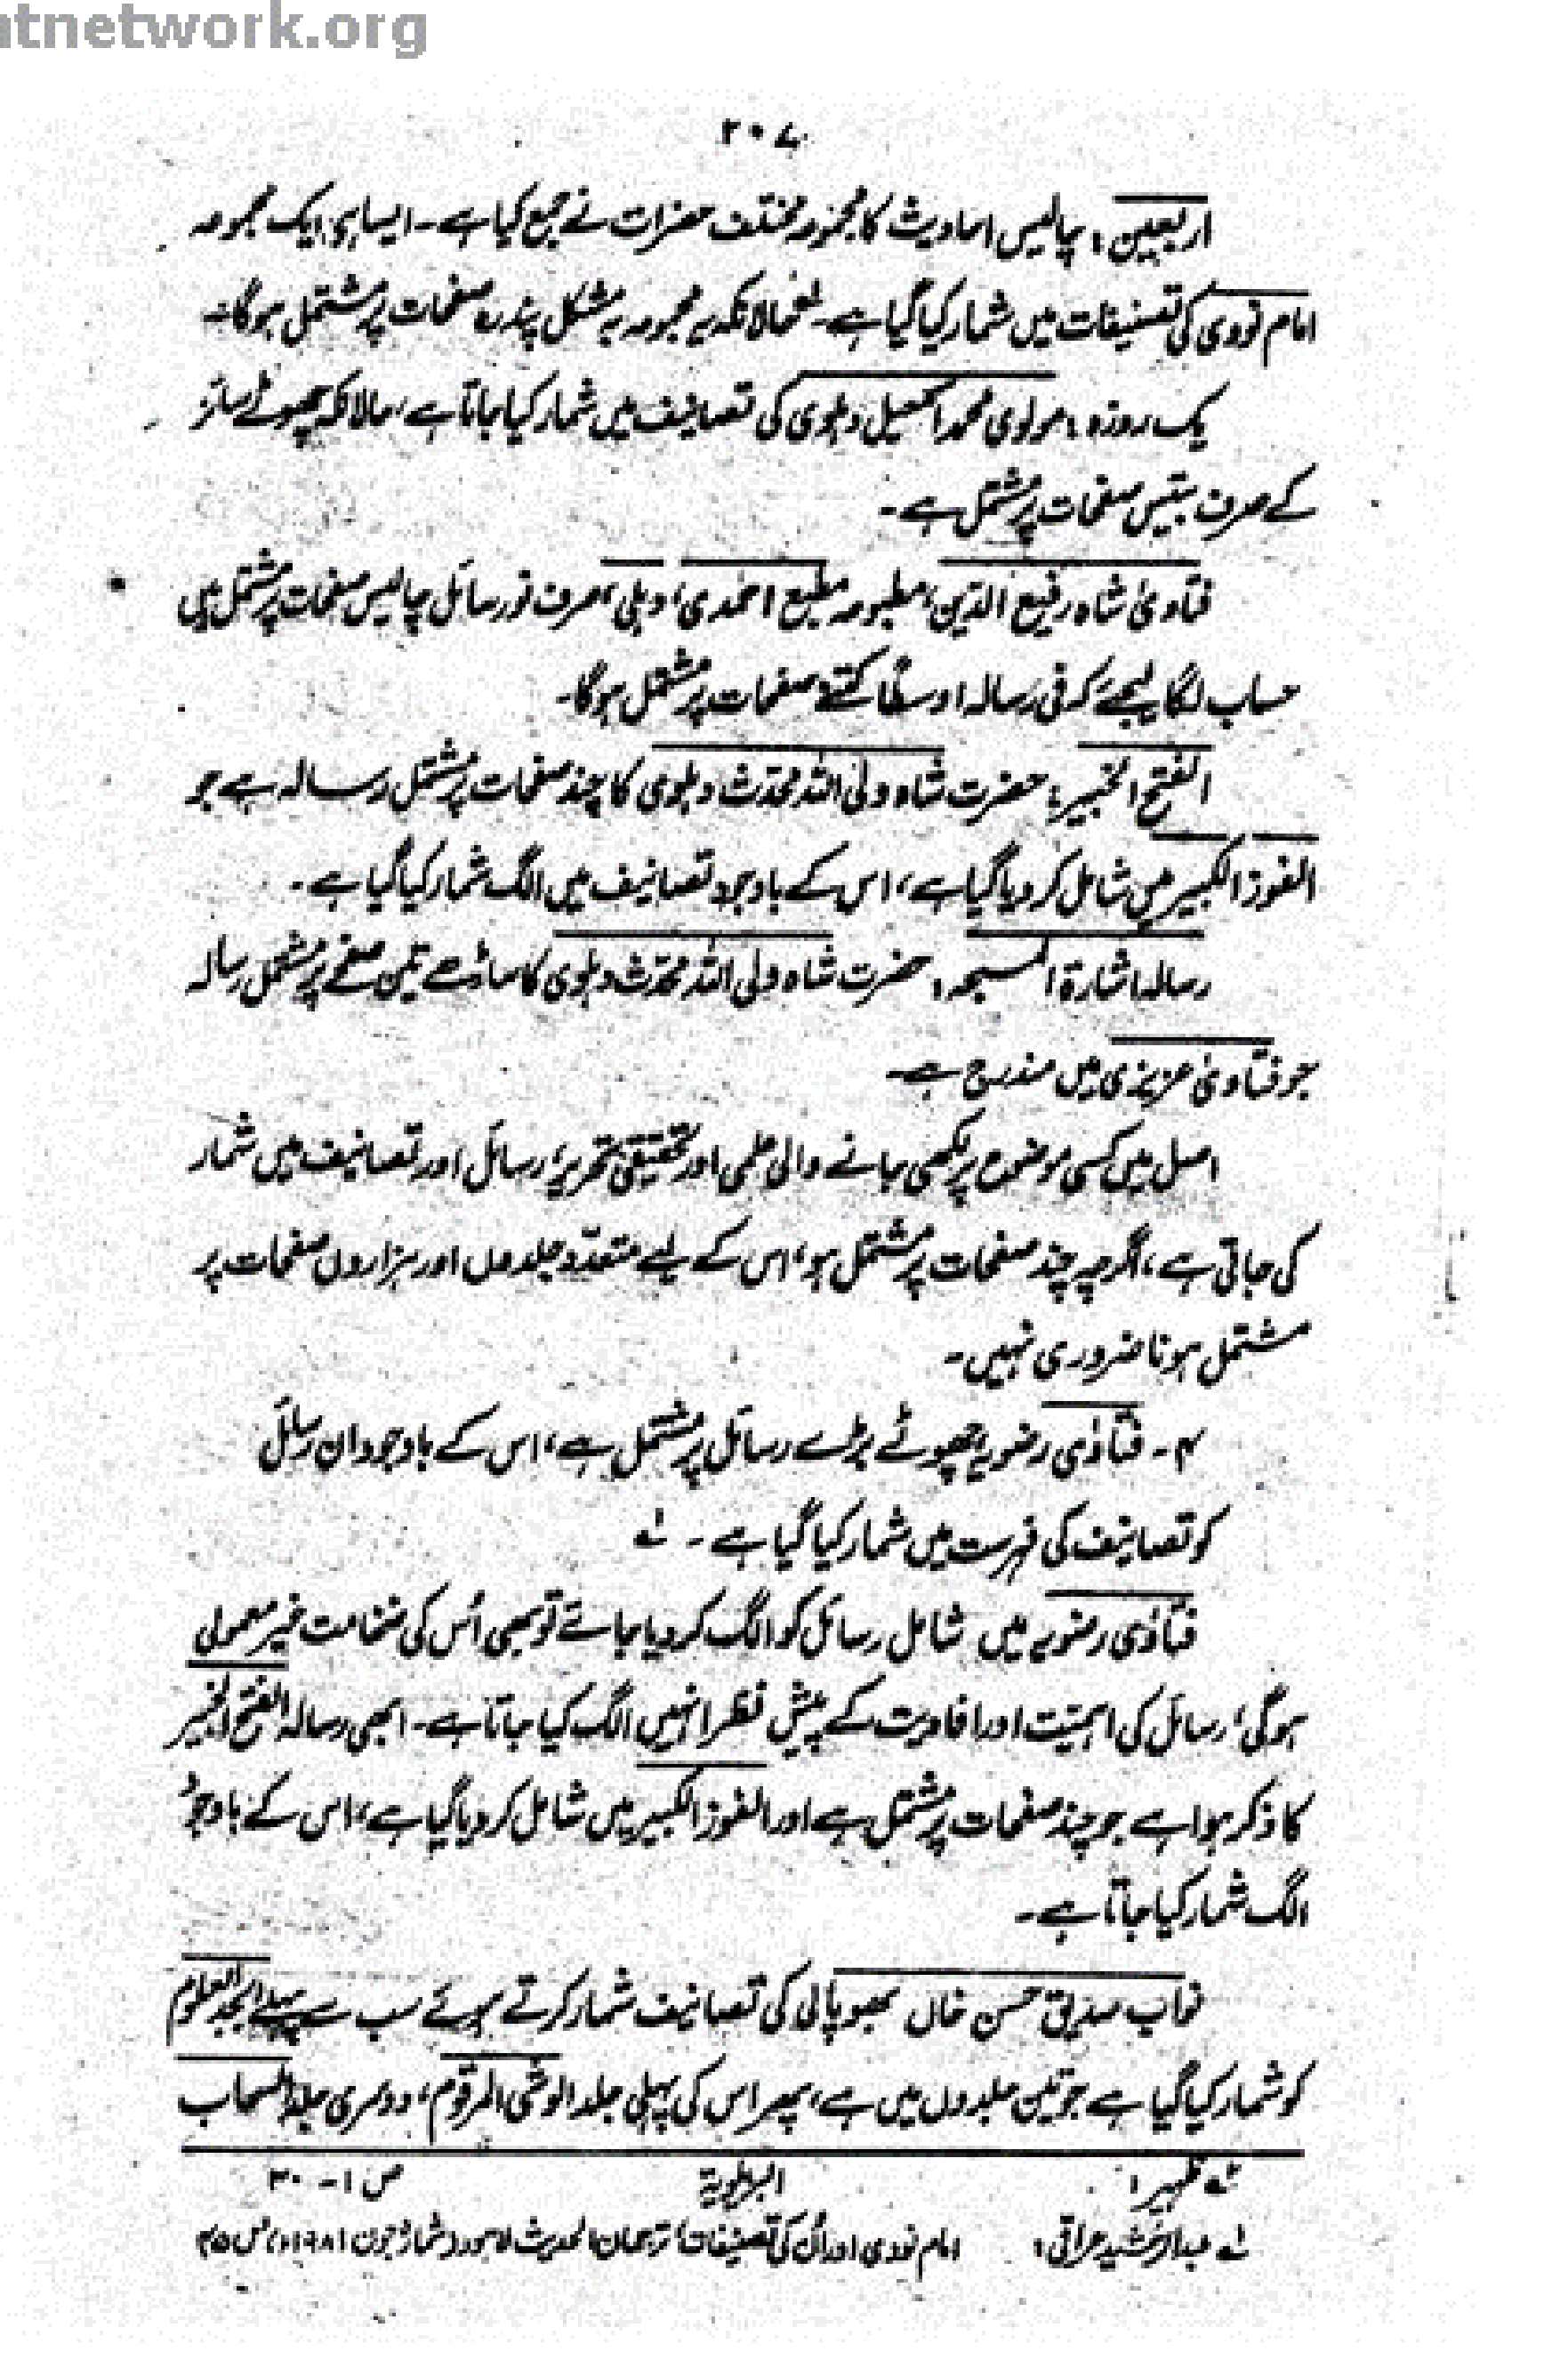 ntnetwork.org
۲۰۷
اربعین؛ چالیس احادیث کا مجموعہ مختلف حضرات نے جمع کیا ہے۔ ایسا ہی ایک مجموعہ
امام نووی کی تصنیفات میں شمار کیا گیا ہے۔ حالانکہ یہ مجموعہ بمشکل پندرہ صفحات پر مشتمل ہوگا۔
یک روزہ؛ مولوی محمد اسمٰعیل دہلوی کی تصانیف میں شمار کیا جاتا ہے، حالانکہ چھوٹے سائز
کے صرف بتیس صفحات پر مشتمل ہے۔
فتاویٰ شاہ رفیع الدین، مطبوعہ مطبع احمدی، دہلی، صرف نو رسائل چالیس صفحات پر مشتمل ہیں
حساب لگا لیجئے کہ فی رسالہ اوسطاً کتنے صفحات پر مشتمل ہوگا۔
الفتح الخبیر؛ حضرت شاہ ولی اللہ محدّث دہلوی کا چند صفحات پر مشتمل رسالہ ہے جو
الفوز الکبیر میں شامل کر دیا گیا ہے، اس کے باوجود تصانیف میں الگ شمار کیا گیا ہے۔
رسالہ اشارۃ المسبحہ؛ حضرت شاہ ولی اللہ محدّث دہلوی کا ساڑھے تین صفحے پر مشتمل رسالہ
جو فتاویٰ عزیزی میں مندرج ہے۔
اصل میں کسی موضوع پر لکھی جانے والی علمی اور تحقیقی تحریر، رسائل اور تصانیف میں شمار
کی جاتی ہے، اگرچہ چند صفحات پر مشتمل ہو، اس کے لیے متعدّد جلدوں اور ہزاروں صفحات پر
مشتمل ہونا ضروری نہیں۔
۴۔ فتاوٰی رضویہ چھوٹے بڑے رسائل پر مشتمل ہے، اس کے باوجود ان رسائل
کو تصانیف کی فہرست میں شمار کیا گیا ہے۔ ؎
فتاوٰی رضویہ میں شامل رسائل کو الگ کر دیا جائے تو بھی اُس کی ضخامت غیر معمولی
ہوگی، رسائل کی اہمیّت اور افادیت کے پیشِ نظر انہیں الگ کیا جاتا ہے۔ ابھی رسالہ الفتح الخبیر
کا ذکر ہوا ہے جو چند صفحات پر مشتمل ہے اور الفوز الکبیر میں شامل کر دیا گیا ہے، اس کے باوجود
الگ شمار کیا جاتا ہے۔
نواب صدیق حسن خاں بھوپالی کی تصانیف شمار کرتے ہوئے سب سے پہلے ابجد العلوم
کو شمار کیا گیا ہے جو تین جلدوں میں ہے، پھر اس کی پہلی جلد الوشی المرقوم، دوسری جلد السحاب
؎ ظہیر؛ البریلویۃ ص ۱-۳۰
؎ عبدالرشید عراقی؛ امام نووی اور اُن کی تصنیفات، ترجمان الحدیث لاہور (شمارہ جون ۱۹۸۱ء) ص ۴۵